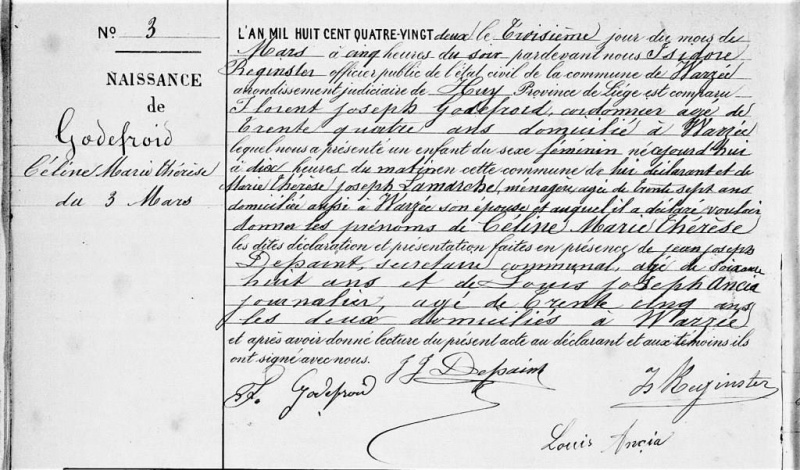 No 3
NAISSANCE
de
Godefroid
Céline Marie Thérèse
du 3 Mars
L'AN MIL HUIT CENT QUATRE-VINGT deux le Troisième jour du mois de
Mars à cinq heures du soir pardevant nous Isidore
Reginster officier public de l'état civil de la commune de Warzée
arrondissement judiciaire de Huy Province de Liége est comparu
Florent Joseph Godefroid, cordonnier agé de
Trente quatre ans domicilié à Warzée
lequel nous a présenté un enfant du sexe féminin né cejourd'hui
à dix heures du matin en cette commune de lui déclarant et de
Marie Thérèse Joseph Lamarche, ménagère, agée de trente sept ans
domiciliée aussi à Warzée son épouse et auquel il a déclaré vouloir
donner les prénoms de Céline Marie Thérèse
les dites déclaration et présentation faites en présence de Jean Joseph
Depaint, secrétaire communal, agé de soixante
huit ans et de Louis Joseph Ancia
journalier agé de Trente cinq ans
les deux domiciliés à Warzée
et après avoir donné lecture du présent acte au déclarant et aux témoins ils
ont signé avec nous.
F. Godefroid
J J Depaint
Is Reginster
Louis Ancia